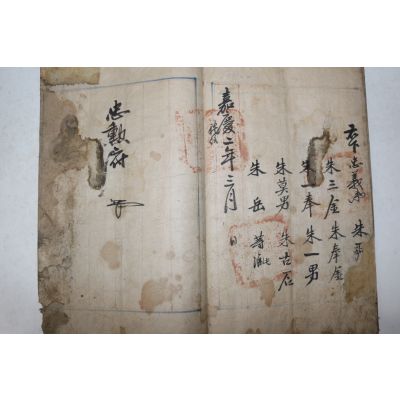 右下忠義衛 朱
朱三金 朱奉金
朱一奉 朱一男
朱莫男 朱古石
朱岳 等准此
嘉慶二年三月 日
忠勲府